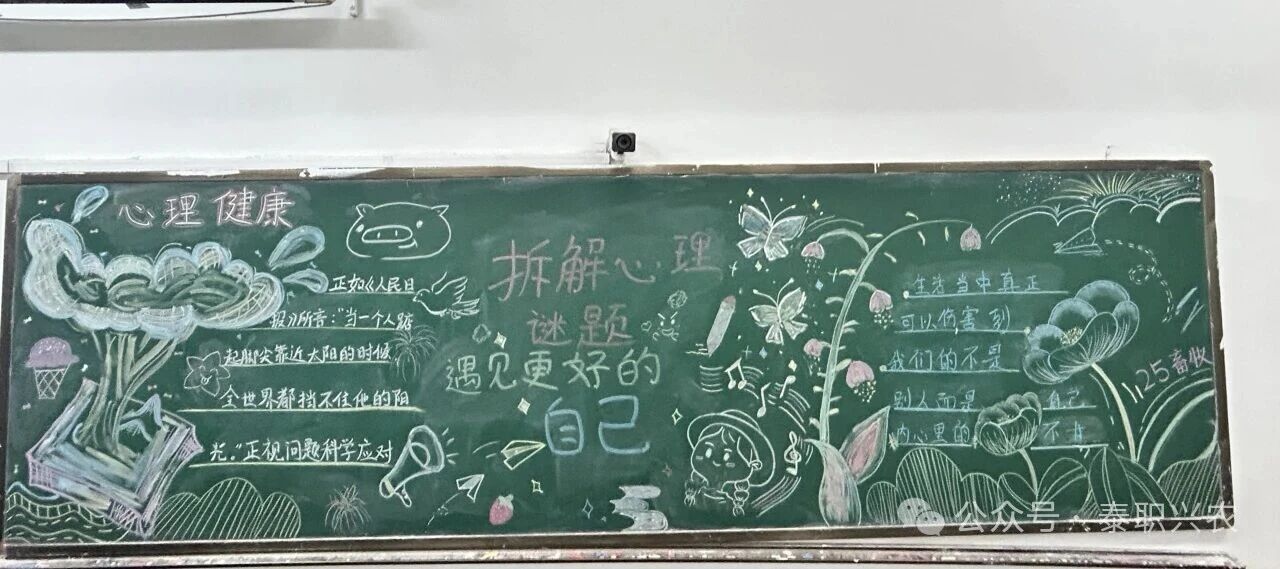 心理健康
正如《人民日
报》所言：“当一个人踮
起脚尖靠近太阳的时候，
全世界都挡不住他的阳
光。”正视问题科学应对
拆解心理
谜题
遇见更好的
自己
生活当中真正
可以伤害到
我们的不是
别人而是 自己
内心里的 不甘
1125畜牧
公众号 · 泰职兴农